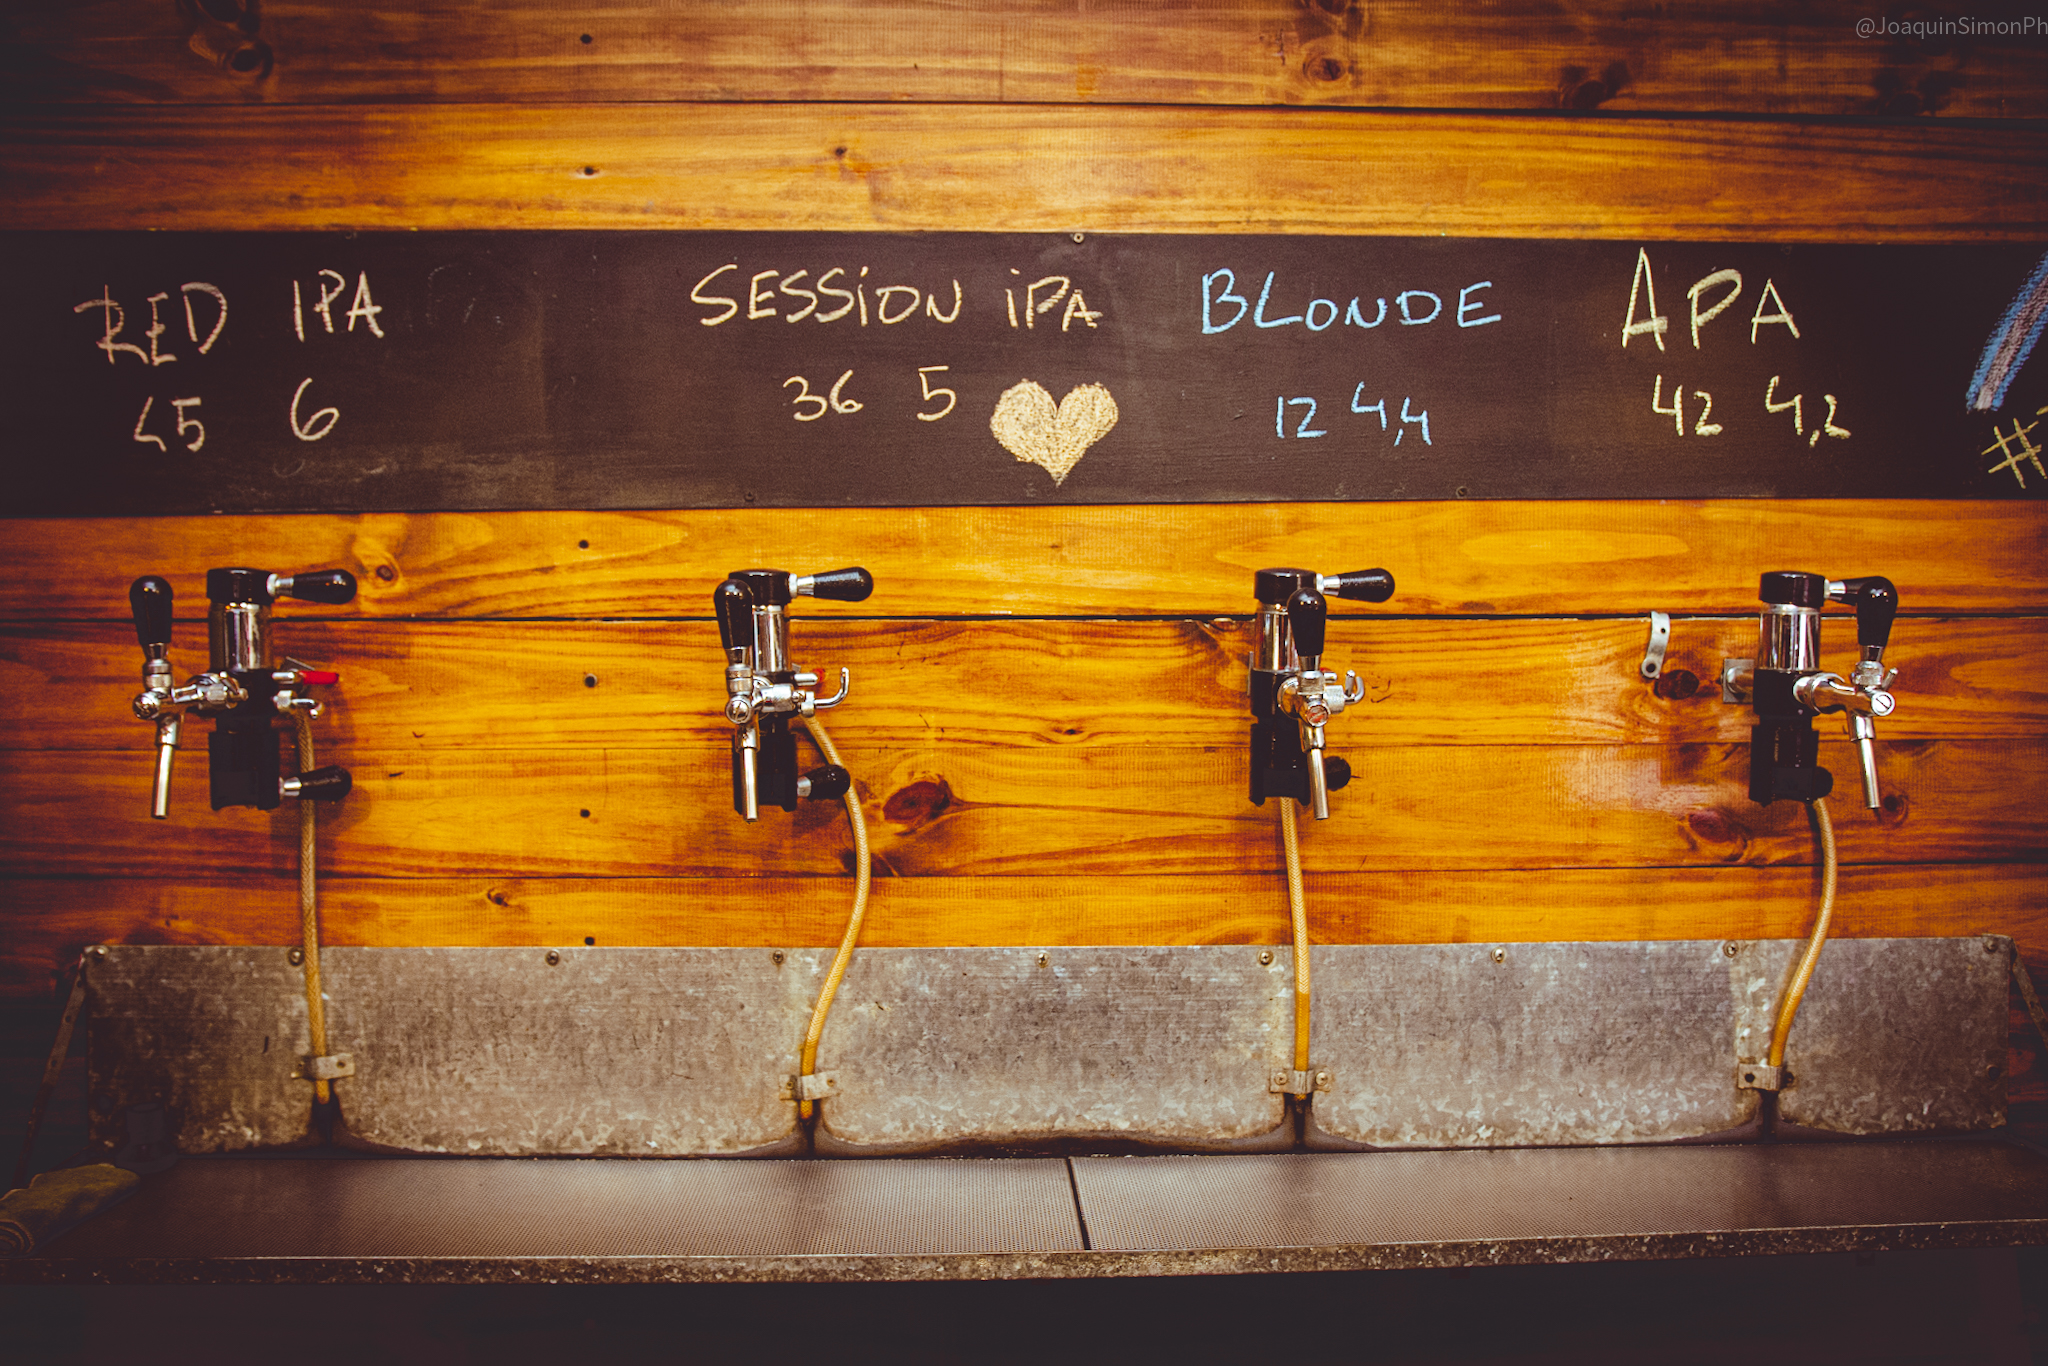 @JoaquinSimonPh
RED IPA
45 6
SESSiON iPA
36 5
BLONDE
12 4,4
APA
42 4,2
#